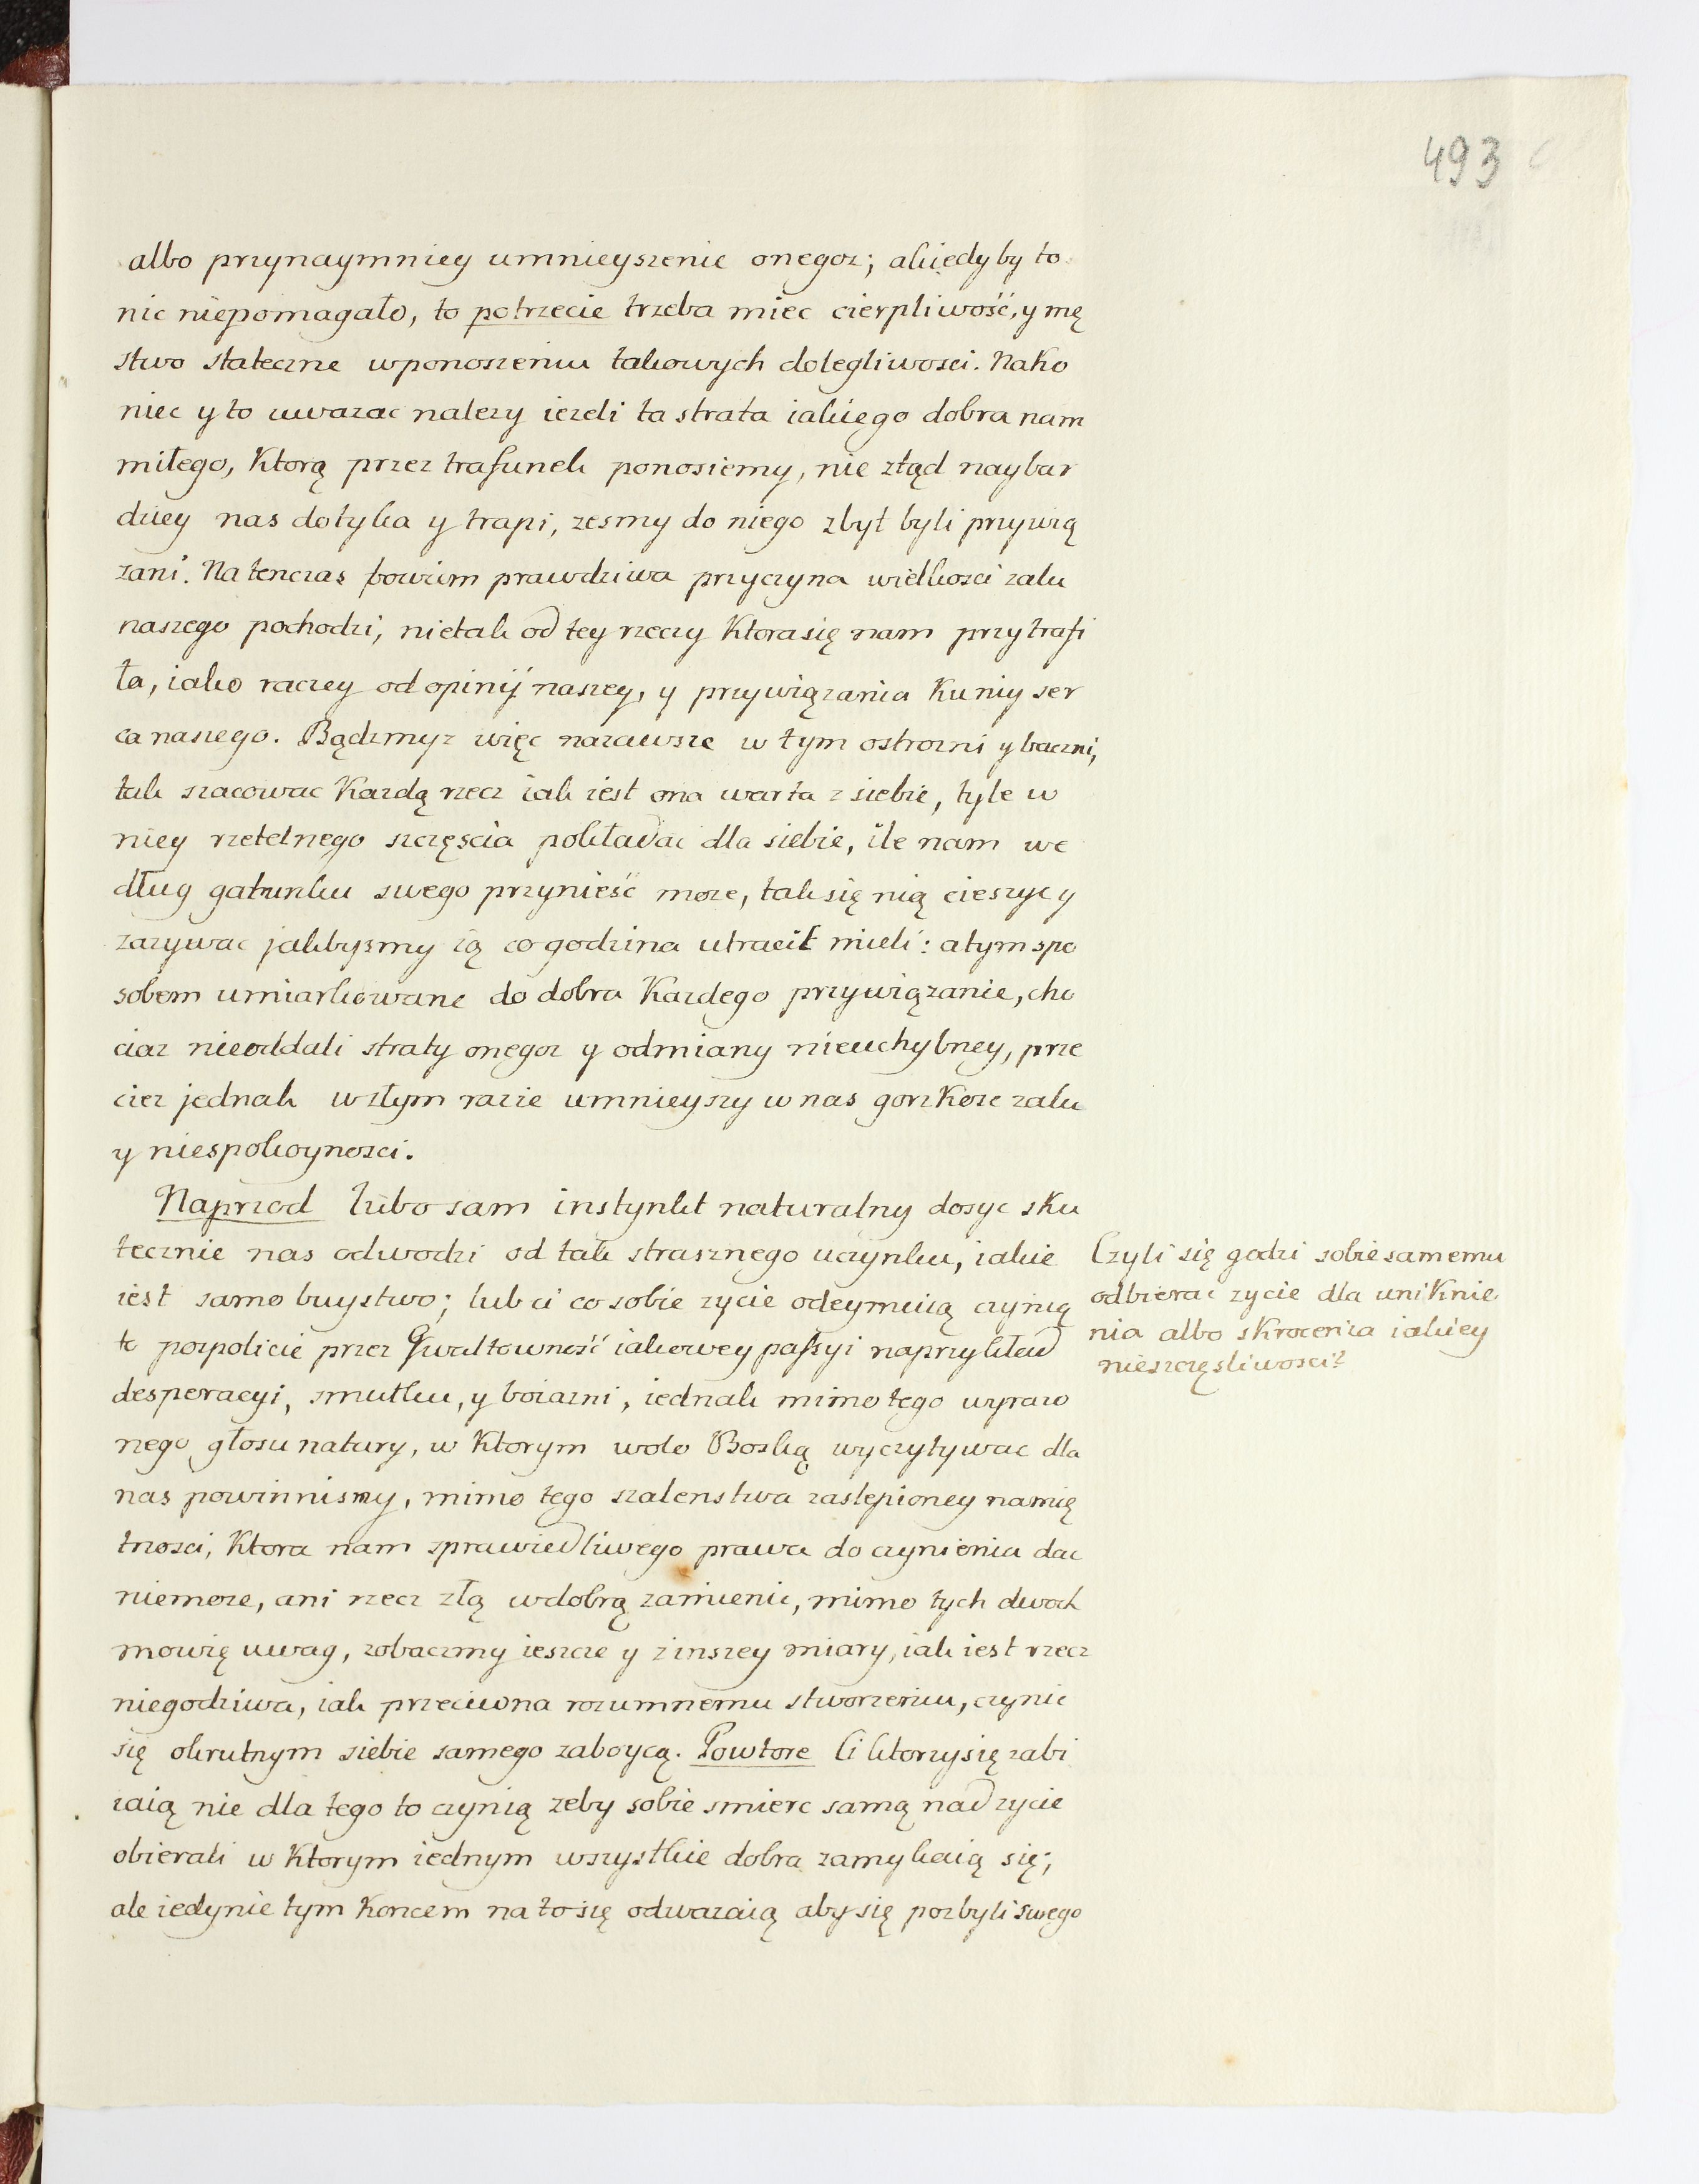 493
albo przynaymniey umnieyszenie onegoz; akiedyby to
nic niepomagało, to potrzecie trzeba miec cierpliwość, y mę
stwo stateczne wponoszeniu takowych dolegliwosci. Nako
niec y to uwazac nalezy iezeli ta strata iakiego dobra nam
miłego, Ktorą przez trafunek ponosiemy, nie ztąd naybar
dziey nas dotyka y trapi, zesmy do niego zbyt byli przywią
zani. Natenczas bowiem prawdziwa przyczyna wielkosci zalu
naszego pochodzi, nietak od tey rzeczy Ktora się nam przytrafi
ła, iako raczey od opinij naszey, y przywiązania Kuniy ser
ca naszego. Bądzmyz więc nazawsze w tym ostrozni y baczni,
tak szacowac Kazdą rzecz iak iest ona warta z siebie, tyle w
niey rzetelnego szczęscia pokładac dla siebie, ile nam we
dług gatunku swego przynieść moze, tak się nią cieszyc y
zazywac jakbysmy ią co godzina utracit mieli: a tym spo
sobem umiarkowane do dobra Kazdego przywiązanie, cho
ciaz nieoddali straty onegoz y odmiany nieuchybney, prze
ciez jednak wzłym razie umnieyszy w nas gorzkosc zalu
y niespokoynosci.
Naprzod lubo sam instynkt naturalny dosyc sku
tecznie nas odwodzi od tak strasznego uczynku, iakie
iest samo buystwo; lub ci co sobie zycie odeymuią czynią
to pospolicie przez Gwałtowność iakowey passyi naprzykład
desperacyi, smutku, y boiazni, iednak mimo tego wyraw
nego głosu natury, w Ktorym wolo Boską wyczytywac dla
nas powinnismy, mimo tego szalenstwa zaslepioney namię
tnosci, Ktora nam sprawiedliwego prawa do czynienia dac
niemoze, ani rzecz złą wdobrą zamienic, mimo tych dwoch
mowię uwag, zobaczmy ieszcze y z inszey miary, iak iest rzecz
niegodziwa, iak przeciwna rozumnemu stworzeniu, czynic
się okrutnym siebie samego zaboycą. Powtore Ci ktorzy się zabi
iaią nie dla tego to czynią zeby sobie smierc samą nad zycie
obierali w Ktorym iednym wszystkie dobra zamykaią się;
ale iedynie tym Koncem na to się odwazaią aby się pozbyli swego
Czyli się godzi sobie samemu
odbierac zycie dla uniKnie
nia albo sKrocenia iakiey
nieszczęsliwosci?